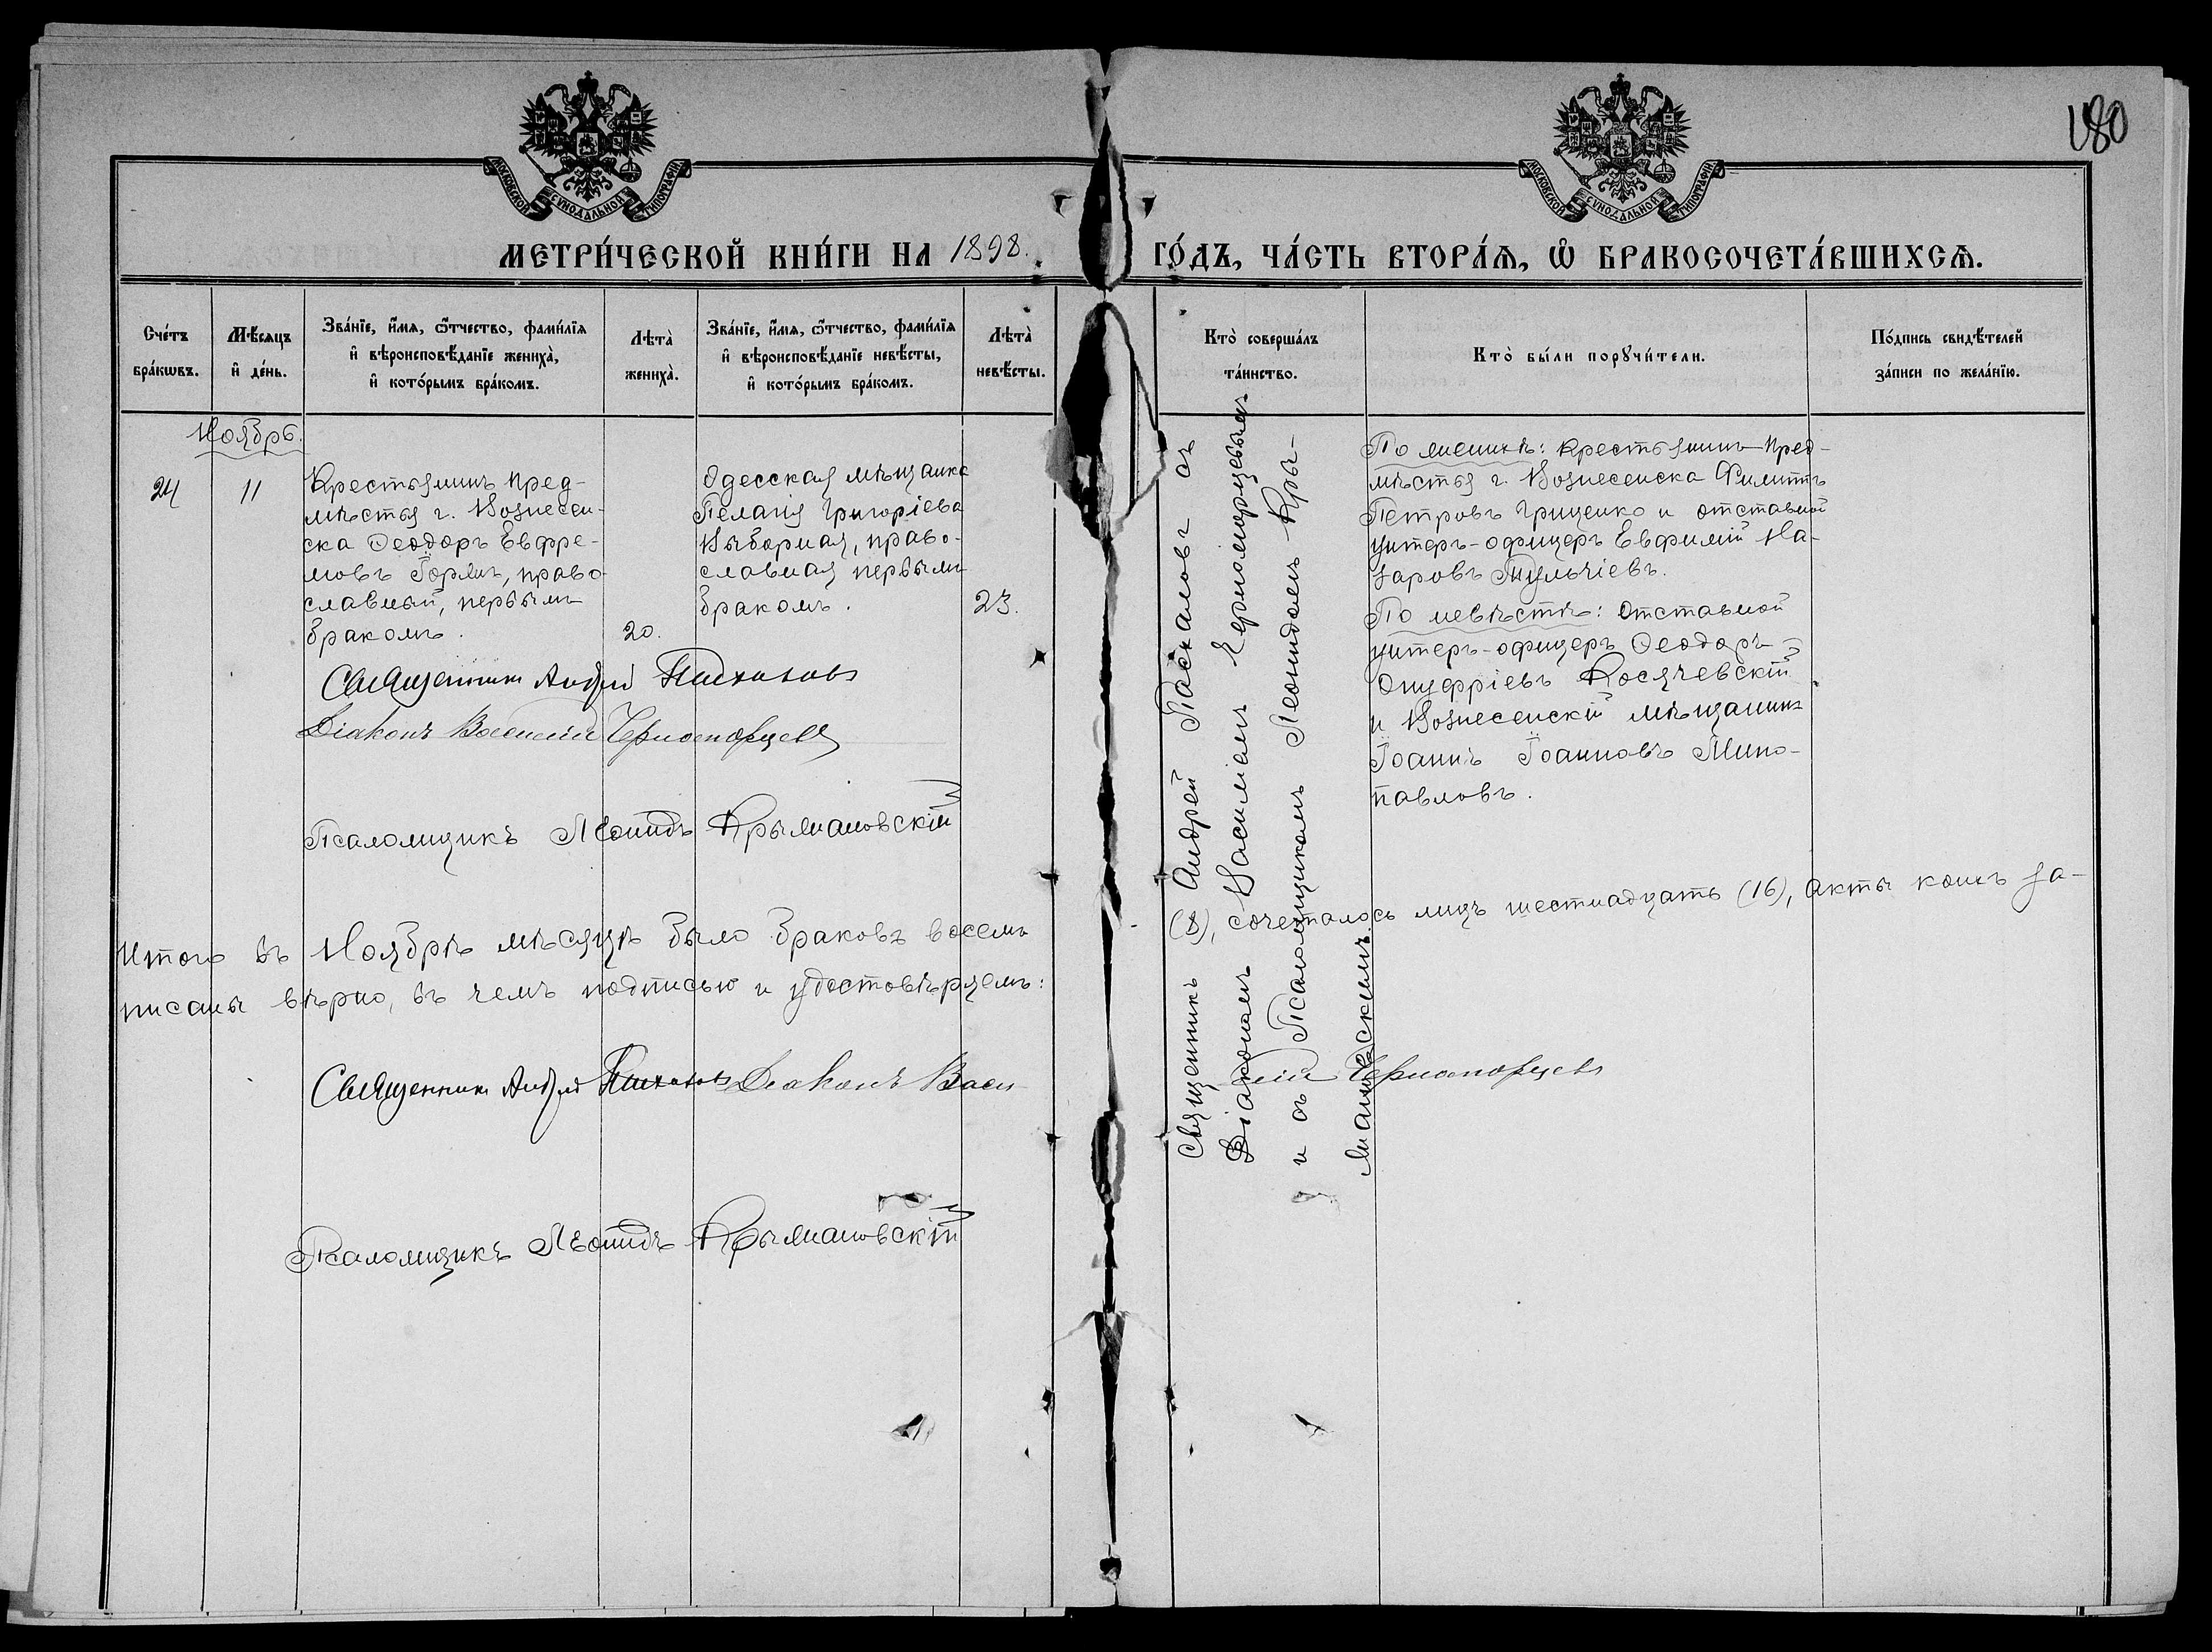 180
МОСКОВСКОЙ СѴНОДАЛЬНОЙ ТИПОГРАФІИ
МОСКОВСКОЙ СѴНОДАЛЬНОЙ ТИПОГРАФІИ
МЕТРИ́ЧЕСКОЙ КНИ́ГИ НА 1898.
ГО́ДЪ, ЧА́СТЬ ВТОРА́Ѧ, Ѽ БРАКОСОЧЕТА́ВШИХСѦ.
Сче́тъ
бра́кѡвъ.
Мѣ́сяцъ
и҆ де́нь.
Зва́нїе, и҆́мя, ѻ҆́тчество, фами́лїя
и҆ вѣроисповѣ́данїе жениха̀,
и҆ кото́рымъ бра́комъ.
Лѣта̀
жениха̀.
Зва́нїе, и҆́мя, ѻ҆́тчество, фами́лїя
и҆ вѣроисповѣ́данїе невѣ́сты,
и҆ кото́рымъ бра́комъ.
Лѣта̀
невѣ́сты.
Кто̀ соверша́лъ
та́инство.
Кто̀ бы́ли порꙋчи́тели.
По́дпись свидѣ́телей
за́писи по жела́нїю.
Ноябрь.
24
11
Крестьянинъ пред-
мѣстья г. Вознесен-
ска Ѳеодоръ Евфре-
мовъ Горлы, право-
славный, первымъ
бракомъ.
20.
Одесская мѣщанка
Пелагія Григоріева
Выборная, право-
славная первымъ
бракомъ.
23.
Священникъ Андрей Паскаловъ съ
Діакономъ Василіемъ Черноморцевымъ
и съ Псаломщикомъ Леонидомъ Кры-
мановскимъ.
По женихѣ: крестьянинъ пред-
мѣстья г. Вознесенска Филиппъ
Петровъ Гриценко и отставной
унтеръ-офицеръ Евфимій На-
заровъ Тульчіевъ.
По невѣстѣ: Отставной
унтеръ-офицеръ Ѳеодоръ
Онуфріевъ Косячевскій
и Вознесенскій мѣщанинъ
Іоаннъ Іоанновъ Мино-
павловъ.
Священникъ Андрей Паскаловъ
Діаконъ Василій Черноморцевъ
Псаломщикъ Леонидъ Крымановскій
Итого въ Ноябрѣ мѣсяцѣ было браковъ восемь (8), сочеталось лицъ шестнадцать (16), акты коихъ за-
писаны вѣрно, въ чемъ подписью и удостовѣряемъ:
Священникъ Андрей Паскаловъ Діаконъ Васи-
лій Черноморцевъ
Псаломщикъ Леонидъ Крымановскій